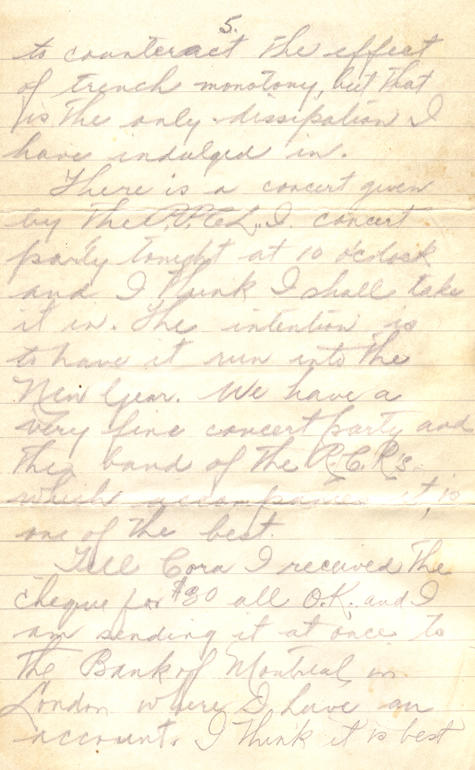 5.
to counteract the effect
of trench monotony, but that
is the only dissipation I
have indulged in.
There is a concert given
by the P.P.C.L.I. concert
party tonight at 10 o'clock
and I think I shall take
it in. The intention is
to have it run into the
New Year. We have a
very fine concert party and
the band of the R.C.R's.
which accompanies it, is
one of the best.
Tell Cora I received the
cheque for $30 all O.K. and I
am sending it at once to
the Bank of Montreal in
London where I have an
account. I think it is best